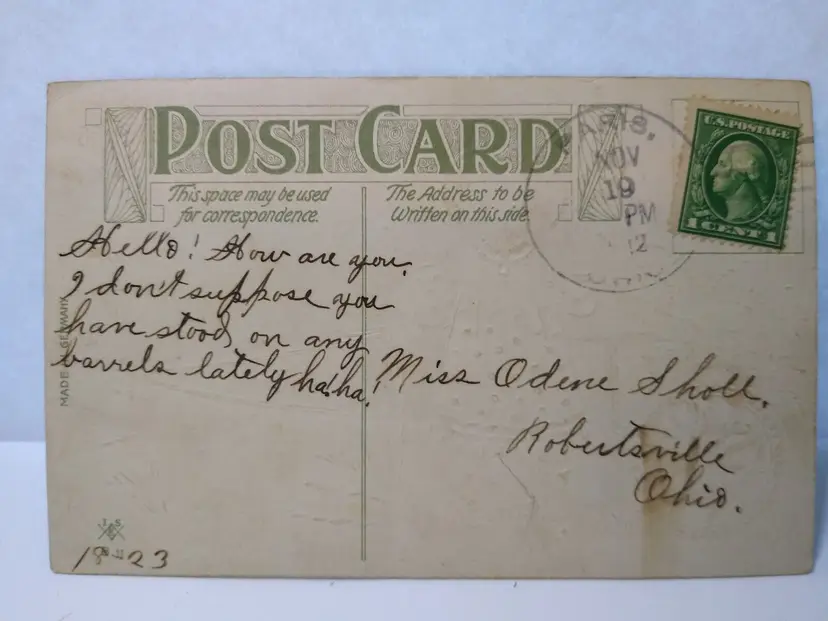 POST CARD
This space may be used
for correspondence.
The Address to be
Written on this side.
PARIS,
NOV
19
PM
12
OHIO
U.S. POSTAGE
1 CENT 1
Hello! How are you.
I don't suppose you
have stood on any
barrels lately ha!ha!
Miss Odene Sholl.
Robertsville
Ohio.
MADE GERMANY
I S
18 23